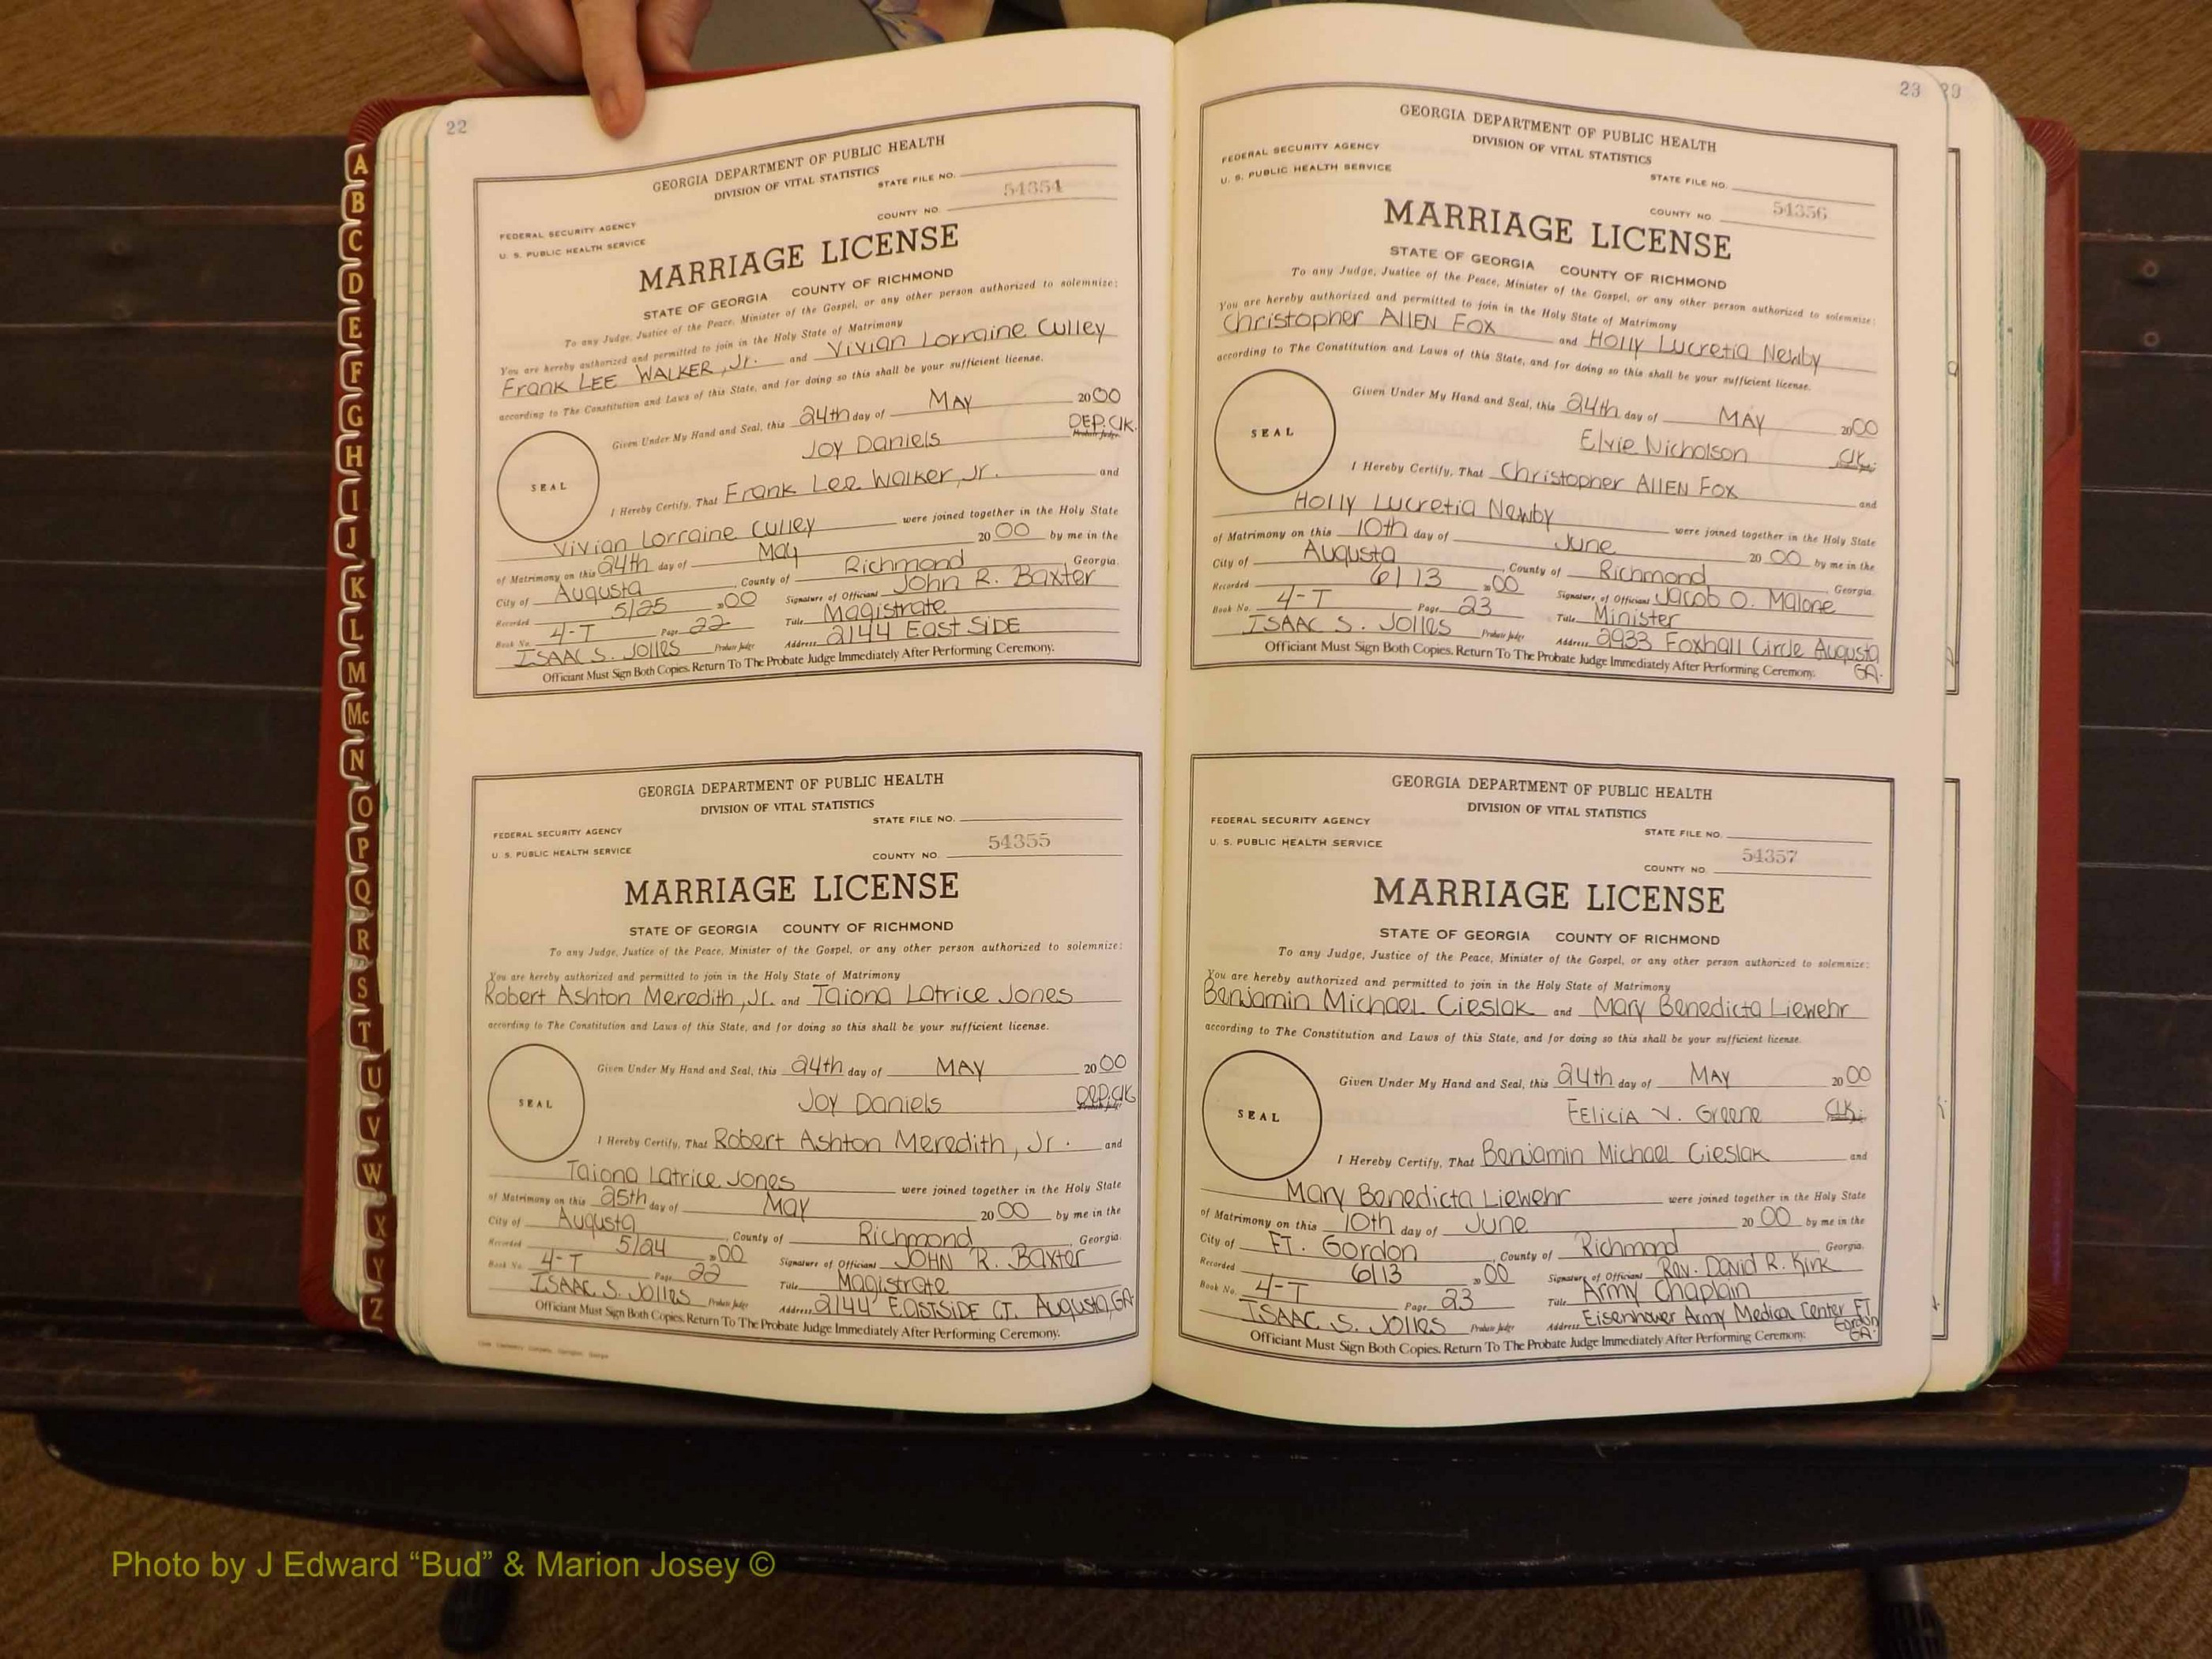 22
GEORGIA DEPARTMENT OF PUBLIC HEALTH
DIVISION OF VITAL STATISTICS
STATE FILE NO.
54354
FEDERAL SECURITY AGENCY
COUNTY NO.
U. S. PUBLIC HEALTH SERVICE
MARRIAGE LICENSE
STATE OF GEORGIA COUNTY OF RICHMOND
To any Judge, Justice of the Peace, Minister of the Gospel, or any other person authorized to solemnize:
You are hereby authorized and permitted to join in the Holy State of Matrimony
Frank LEE WALKER, Jr. and Vivian Lorraine Culley
according to The Constitution and Laws of this State, and for doing so this shall be your sufficient license.
Given Under My Hand and Seal, this 24th day of MAY 2000
Joy Daniels DEP. Clk. Probate Judge
SEAL
I Hereby Certify, That Frank Lee Walker, Jr. and
Vivian Lorraine Culley were joined together in the Holy State
of Matrimony on this 24th day of May 20 00 by me in the
City of Augusta, County of Richmond, Georgia.
Recorded 5/25 2000 Signature of Officiant John R. Baxter
Book No. 4-T Page 22 Title Magistrate
ISAAC S. Jolles Probate Judge Address 2144 East SIDE
Officiant Must Sign Both Copies. Return To The Probate Judge Immediately After Performing Ceremony.
GEORGIA DEPARTMENT OF PUBLIC HEALTH
DIVISION OF VITAL STATISTICS
STATE FILE NO.
FEDERAL SECURITY AGENCY
54355
U. S. PUBLIC HEALTH SERVICE
COUNTY NO.
MARRIAGE LICENSE
STATE OF GEORGIA COUNTY OF RICHMOND
To any Judge, Justice of the Peace, Minister of the Gospel, or any other person authorized to solemnize:
You are hereby authorized and permitted to join in the Holy State of Matrimony
Robert Ashton Meredith, Jr. and Taiona Latrice Jones
according to The Constitution and Laws of this State, and for doing so this shall be your sufficient license.
Given Under My Hand and Seal, this 24th day of MAY 2000
Joy Daniels Dep. Clk Probate Judge
SEAL
I Hereby Certify, That Robert Ashton Meredith, Jr. and
Taiona Latrice Jones were joined together in the Holy State
of Matrimony on this 25th day of May 20 00 by me in the
City of Augusta, County of Richmond, Georgia.
Recorded 5/24 2000 Signature of Officiant JOHN R. Baxter
Book No. 4-T Page 22 Title Magistrate
ISAAC S. Jolles Probate Judge Address 2144 EASTSIDE CT. Augusta, GA.
Officiant Must Sign Both Copies. Return To The Probate Judge Immediately After Performing Ceremony.
23
GEORGIA DEPARTMENT OF PUBLIC HEALTH
DIVISION OF VITAL STATISTICS
FEDERAL SECURITY AGENCY
U. S. PUBLIC HEALTH SERVICE
STATE FILE NO.
54356
COUNTY NO.
MARRIAGE LICENSE
STATE OF GEORGIA COUNTY OF RICHMOND
To any Judge, Justice of the Peace, Minister of the Gospel, or any other person authorized to solemnize:
You are hereby authorized and permitted to join in the Holy State of Matrimony
Christopher ALLEN Fox and Holly Lucretia Newby
according to The Constitution and Laws of this State, and for doing so this shall be your sufficient license.
Given Under My Hand and Seal, this 24th day of MAY 2000
Elvie Nicholson Clk.
SEAL
I Hereby Certify, That Christopher ALLEN Fox and
Holly Lucretia Newby were joined together in the Holy State
of Matrimony on this 10th day of June 20 00 by me in the
City of Augusta, County of Richmond, Georgia.
Recorded 6/13 2000 Signature of Officiant Jacob O. Malone
Book No. 4-T Page 23 Title Minister
ISAAC S. Jolles Probate Judge Address 2933 Foxhall Circle Augusta
GA.
Officiant Must Sign Both Copies. Return To The Probate Judge Immediately After Performing Ceremony.
GEORGIA DEPARTMENT OF PUBLIC HEALTH
DIVISION OF VITAL STATISTICS
FEDERAL SECURITY AGENCY
STATE FILE NO.
U. S. PUBLIC HEALTH SERVICE
54357
COUNTY NO.
MARRIAGE LICENSE
STATE OF GEORGIA COUNTY OF RICHMOND
To any Judge, Justice of the Peace, Minister of the Gospel, or any other person authorized to solemnize:
You are hereby authorized and permitted to join in the Holy State of Matrimony
Benjamin Michael Cieslak and Mary Benedicta Liewehr
according to The Constitution and Laws of this State, and for doing so this shall be your sufficient license.
Given Under My Hand and Seal, this 24th day of MAY 2000
FELICIA V. Greene CLK.
SEAL
I Hereby Certify, That Benjamin Michael Cieslak and
Mary Benedicta Liewehr were joined together in the Holy State
of Matrimony on this 10th day of June 20 00 by me in the
City of FT. Gordon, County of Richmond Georgia.
Recorded 6/13 2000 Signature of Officiant Rev. David R. Kirk
Book No. 4-T Page 23 Title Army Chaplain
ISAAC S. Jolles Probate Judge Address Eisenhower Army Medical Center FT.
Gordon
GA.
Officiant Must Sign Both Copies. Return To The Probate Judge Immediately After Performing Ceremony.
A
B
C
D
E
F
G
H
I
J
K
L
M
Mc
N
O
P
Q
R
S
T
U
V
W
X
Y
Z
Photo by J Edward “Bud” & Marion Josey ©